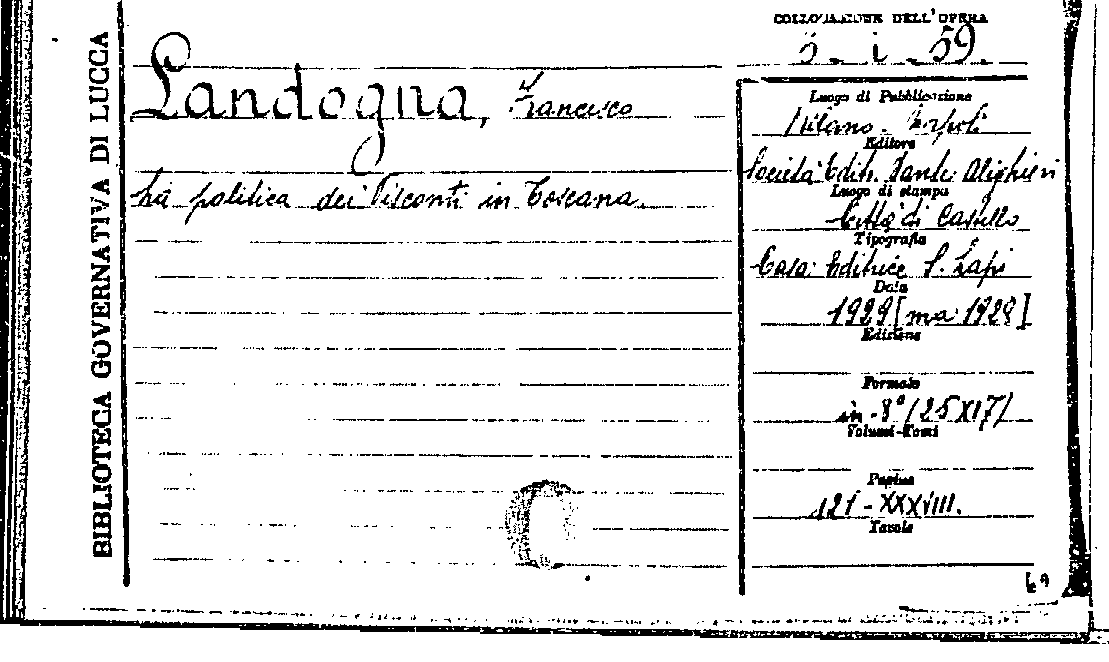 BIBLIOTECA GOVERNATIVA DI LUCCA
COLLOCAZIONE DELL'OPERA
5. i. 59.
Landogna, Francesco
La politica dei Visconti in Toscana.
Luogo di Pubblicazione
Milano - Napoli
Editore
Società Edit. Dante Alighieri
Luogo di stampa
Città di Castello
Tipografia
Casa Editrice S. Lapi
Data
1929 [ma 1928]
Edizione
Formato
in-8° (25X17)
Volumi-Tomi
Pagine
121 - XXXVIII.
Tavole
C